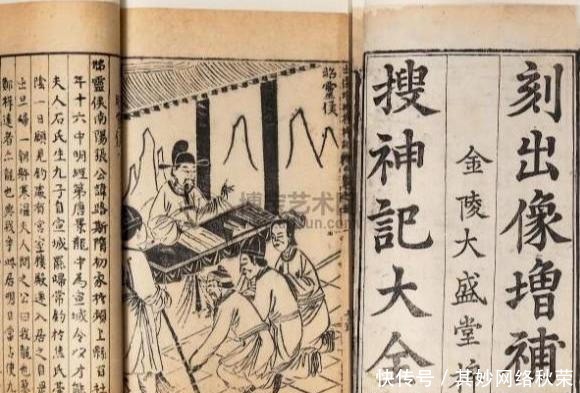 刻出像增補
金陵大盛堂
搜神記大全
昭靈侯
昭靈侯南陽張公諱路斯隋初家於潁上縣百社
年十六中明經第唐景龍中為宣城令以才能
夫人石氏生九子自宣城罷歸常釣於焦氏臺
陰一日顧見釣處有宮室樓殿遂入居之自是
寒濕夫人問之公曰我龍也
鄭祥遠者亦龍也與我爭此居明日當占使九
快传号 / 其妙网络秋荣